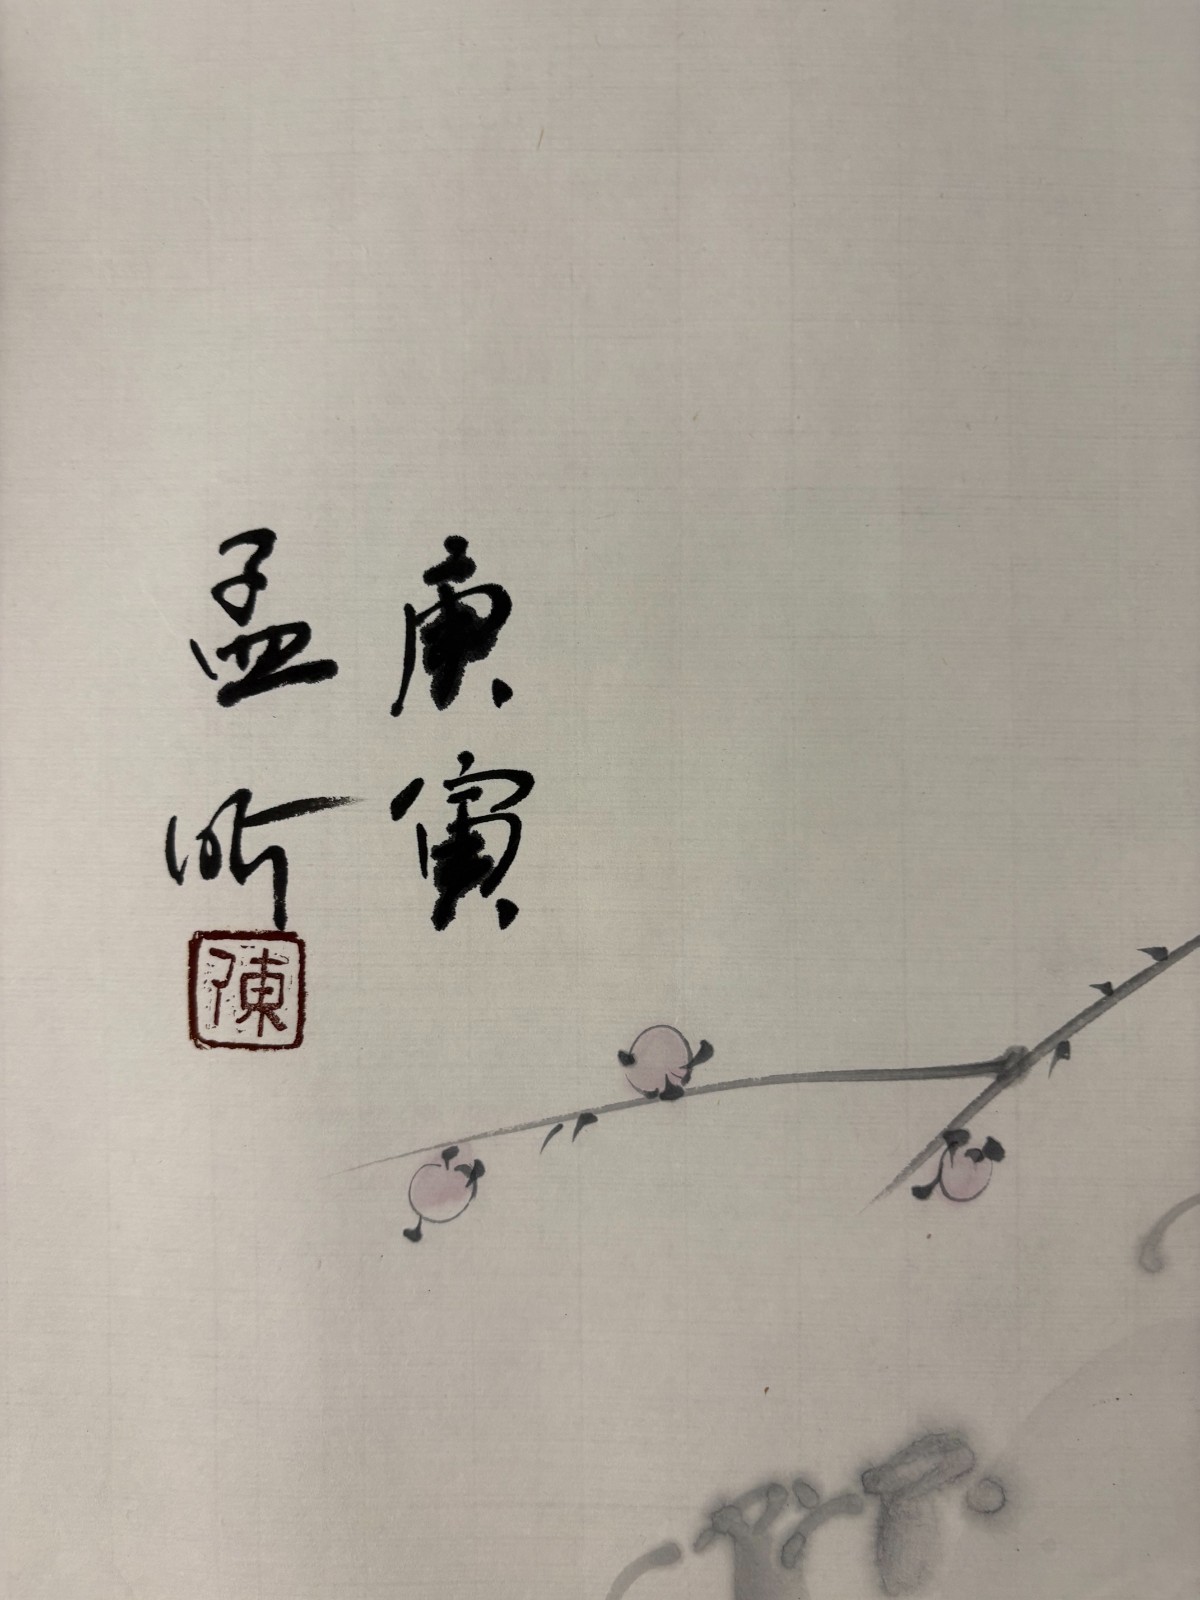 庚寅
孟昕
陳